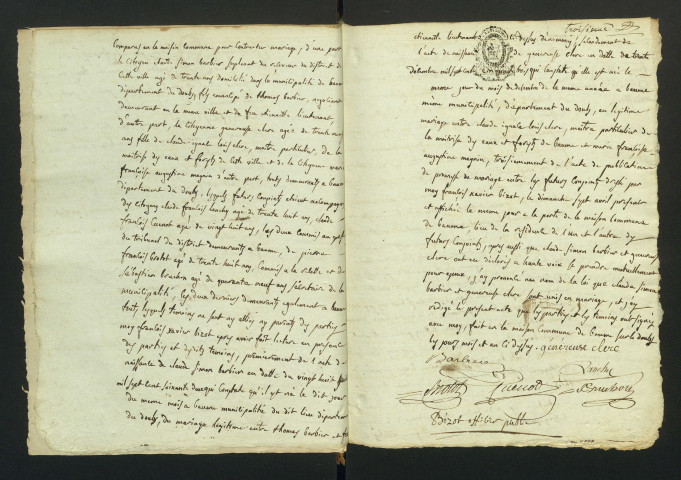 Comparus en la maison commune pour contracter mariage, d'une part
le citoyen claude simon barbier suppleant du receveur du district de
cette ville agé de trente ans domicilié dans la municipalité de baume
département du doubs, fils emancipé de thomas barbier, negotiant
demeurant en la meme ville et de feu etiennette lieutenant,
d'autre part, la citoyenne genereuse clerc agée de trente
ans fille de claude ignace louis clerc, maitre particulier, de la
maitrise des eaux et forets de cette ville et de la citoyenne marie
françoise augustine magnin d'autre part, touts demeurants a baume
département du doubs, lesquels futurs conjoints etoient accompagnés
des citoyens claude françois louchy agé de trente huit ans, claude
françois cuenot agé de vingt huit ans, les deux commis au greffe
du tribunal du district demeurants a baume, de pierre
françois bratot agé de trente huit ans, commis a la
sebastien brachon agé de quarante neuf ans sécretaire de la
municipalité, les deux derniers demeurants egalement a baume
touts, lesquels temoins ne sont ny alliés ny parents des parties
moy françois xavier bizot apres avoir fait lecture en presence
des parties et desdits temoins, premierement de l'acte de
naissance de claude simon barbier en datte du vingt huit
mil sept cent soixante deux qui constate qu'il est né le dit jour
du meme mois a baume municipalité du dit lieu département
du doubs, du mariage legitime entre thomas barbier et feu
troisieme
etiennette lieutenant cy dessus denommés, secondement de
l'acte de naissance de genereuse clerc en datte du trente
décembre mil sept cent qui constate qu'elle est née le
meme jour du mois de décembre de la meme année a baume
meme municipalité, département du doubs, en legitime
mariage entre claude ignace louis clerc, maitre particulier de
la maitrise des eaux et forets de baume et marie françoise
augustine magnin, troisiemement de l'acte de publication
de promesse de mariage entre les futurs conjoints dressé par
moy françois xavier bizot, le dimanche sept avril present
et affiché le meme jour a la porte de la maison commune
de baume, lieu de la residence de l'un et l'autre des
futurs conjoints, apres aussi que claude simon barbier et genereuse
clerc ont eu déclaré a haute voix se prendre mutuellement
pour epoux, j'ay prononcé au nom de la loi que claude simon
barbier et genereuse clerc sont unis en mariage, et j'ay
redigé le present acte que les parties et les temoins ont signé
avec moy, fait en la maison commune de baume sur le doubs
les jours mois et an cy dessus. genéreuse clerc
Barbier
Bratot Cuenot
Bizot officier public